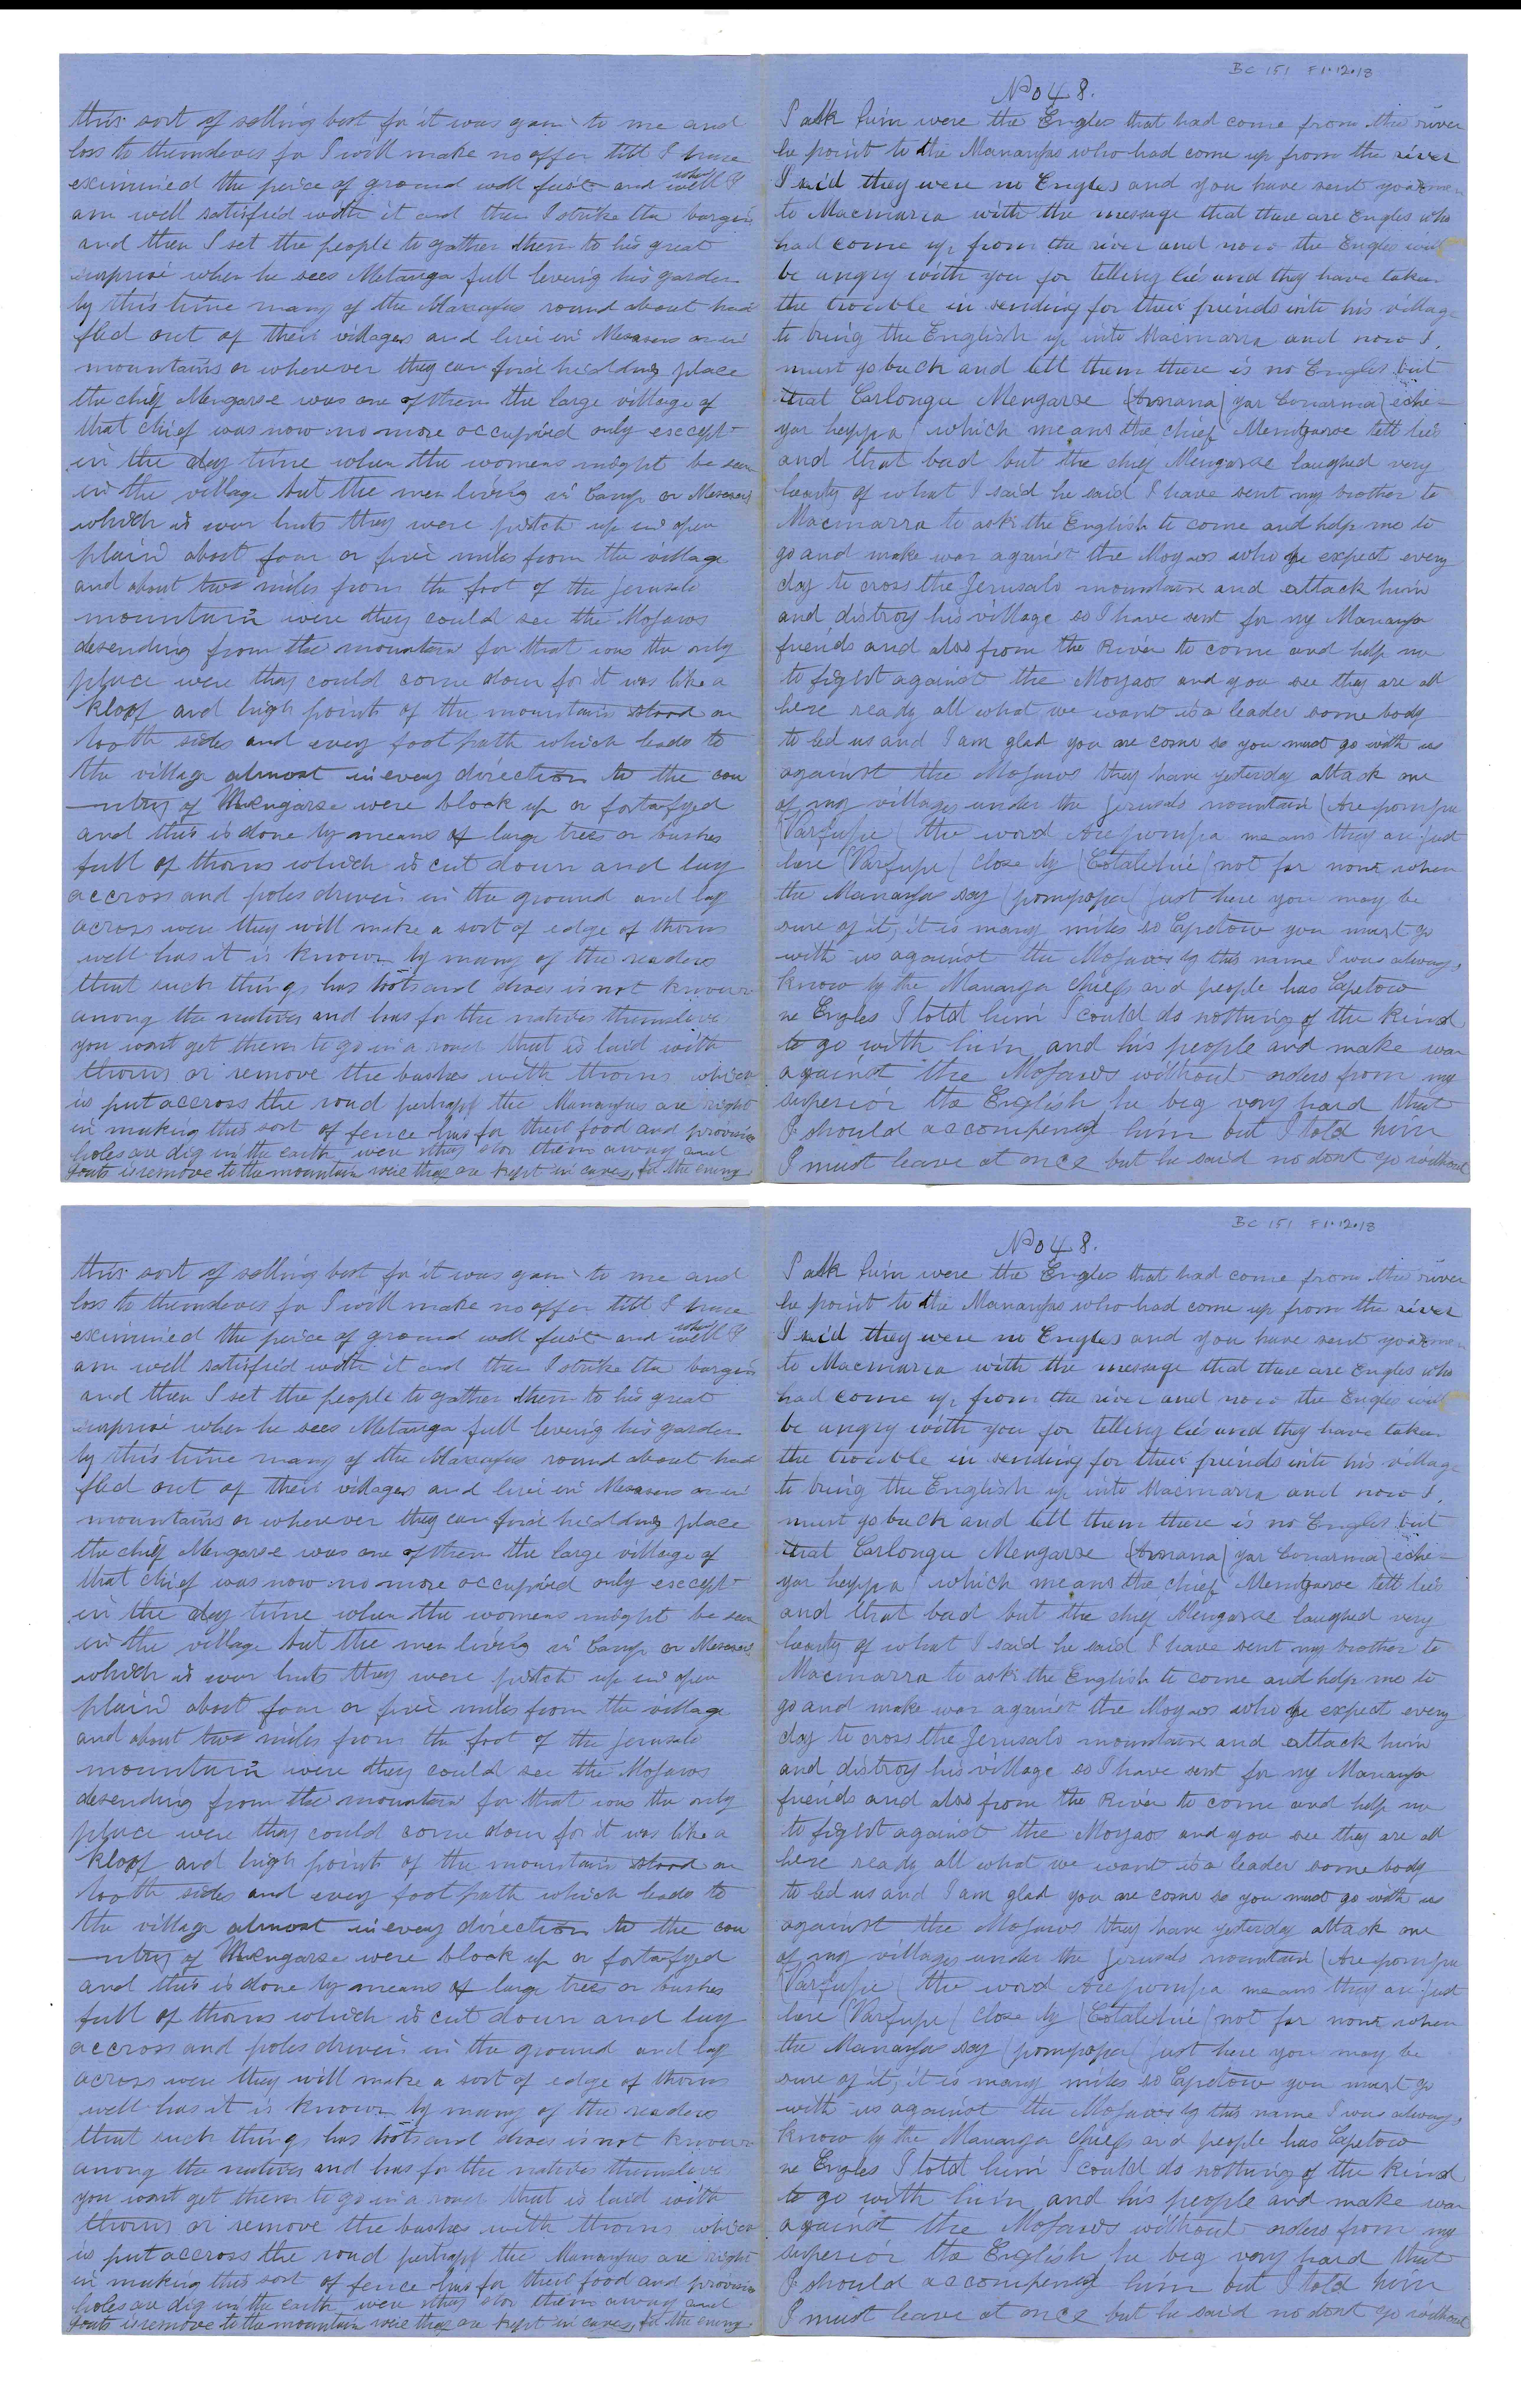 this sort of selling best for it was gain to me and
loss to themselves for I will make no offer till I have
eximined the peice of ground well first and when I
am well satisfied with it and then I strike the bargin
and then I set the people to gather them to his great
surprise when he sees Matanga full leving his garden
by this time many of the Mananjas round about had
fled out of their villages and live in Mesasers or in
mountains or wherever they can find hidding place
the chief Mengarse was one of them the large village of
that chief was now no more occupied only escept
in the day time when the womens might be seen
in the village but the men living in Camp or Mesasers
which is war huts they were pitch up in open
plain about four or five miles from the village
and about two miles from the foot of the Jerusalo
mountain were they could see the Mojaws
desending from the mountain for that was the only
place were they could come down for it was like a
kloof and high points of the mountain stood on
both sides and every foot path which leads to
the village almost in every direction to the cou
-ntry of Mengarse were block up or fortafyed
and this is done by means of large trees or bushes
full of thorns which is cut down and lay
accross and poles driven in the ground and lay
across were they will make a sort of edge of thorns
well has it is known by many of the readers
that such things has boots and shoes is not known
among the natives and has for the natives themselves
you wont get them to go in a road that is laid with
thorns or remove the bushes with thorns which
is put accross the road perhapf the Mananjas are right
in making this sort of fence has for their food and provision
holes are dig in the earth were they stow them away and
goats is remove to the mountain were they are kept in caves, for the enemy
BC 151 F1.12.18
No 48.
I ask him were the Engles that had come from the river
he point to the Mananjas who had come up from the river
I said they were no Engles and you have sent your men
to Macmarra with the message that there are Engles who
had come up from the river and now the Engles will
be angry with you for telling lie and they have taken
the trouble in sending for their friends into his village
to bring the English up into Macmarra and now I
must go back and tell them there is no Engles but
that Carlongu Mengarse (Amana) yar Conarma) eche-
yar heppa) which means the chief Mengarse tell lies
and that bad but the chief Mengarse laughed very
hearty of what I said he said I have sent my brother to
Macmarra to ask the English to come and help me to
go and make war against the Moyaos who he expect every
day to cross the Jerusalo mountain and attack him
and distroy his village so I have sent for my Mananja
friends and also from the River to come and help me
to fight against the Moyaos and you see they are all
here ready all what we want is a leader some body
to led us and I am glad you are come so you must go with us
against the Mojaws they have yesterday attack one
of my villages under the Jerusalo mountain (Are pompa
(Varfupe ( the word Are pompa means they are just
here (Varfupe ( close by (Cotalehie) not far now when
the Mananjas say (pompopa( just here you may be
sure of it, it is many miles so Capetow you must go
with us against the Mojaws by this name I was always
know by the Mananja Chiefs and people has Capetow
ne Engles I told him I could do nothing of the kind
to go with him and his people and make war
against the Mojaws without orders from my
superior the English he beg very hard that
I should accompened him but I told him
I must leave at once but he said no dont go without
this sort of selling best for it was gain to me and
loss to themselves for I will make no offer till I have
eximined the peice of ground well first and when I
am well satisfied with it and then I strike the bargin
and then I set the people to gather them to his great
surprise when he sees Matanga full leving his garden
by this time many of the Mananjas round about had
fled out of their villages and live in Mesasers or in
mountains or wherever they can find hidding place
the chief Mengarse was one of them the large village of
that chief was now no more occupied only escept
in the day time when the womens might be seen
in the village but the men living in Camp or Mesasers
which is war huts they were pitch up in open
plain about four or five miles from the village
and about two miles from the foot of the Jerusalo
mountain were they could see the Mojaws
desending from the mountain for that was the only
place were they could come down for it was like a
kloof and high points of the mountain stood on
both sides and every foot path which leads to
the village almost in every direction to the cou
-ntry of Mengarse were block up or fortafyed
and this is done by means of large trees or bushes
full of thorns which is cut down and lay
accross and poles driven in the ground and lay
across were they will make a sort of edge of thorns
well has it is known by many of the readers
that such things has boots and shoes is not known
among the natives and has for the natives themselves
you wont get them to go in a road that is laid with
thorns or remove the bushes with thorns which
is put accross the road perhapf the Mananjas are right
in making this sort of fence has for their food and provision
holes are dig in the earth were they stow them away and
goats is remove to the mountain were they are kept in caves, for the enemy
BC 151 F1.12.18
No 48.
I ask him were the Engles that had come from the river
he point to the Mananjas who had come up from the river
I said they were no Engles and you have sent your men
to Macmarra with the message that there are Engles who
had come up from the river and now the Engles will
be angry with you for telling lie and they have taken
the trouble in sending for their friends into his village
to bring the English up into Macmarra and now I
must go back and tell them there is no Engles but
that Carlongu Mengarse (Amana) yar Conarma) eche-
yar heppa) which means the chief Mengarse tell lies
and that bad but the chief Mengarse laughed very
hearty of what I said he said I have sent my brother to
Macmarra to ask the English to come and help me to
go and make war against the Moyaos who he expect every
day to cross the Jerusalo mountain and attack him
and distroy his village so I have sent for my Mananja
friends and also from the River to come and help me
to fight against the Moyaos and you see they are all
here ready all what we want is a leader some body
to led us and I am glad you are come so you must go with us
against the Mojaws they have yesterday attack one
of my villages under the Jerusalo mountain (Are pompa
(Varfupe ( the word Are pompa means they are just
here (Varfupe ( close by (Cotalehie) not far now when
the Mananjas say (pompopa( just here you may be
sure of it, it is many miles so Capetow you must go
with us against the Mojaws by this name I was always
know by the Mananja Chiefs and people has Capetow
ne Engles I told him I could do nothing of the kind
to go with him and his people and make war
against the Mojaws without orders from my
superior the English he beg very hard that
I should accompened him but I told him
I must leave at once but he said no dont go without